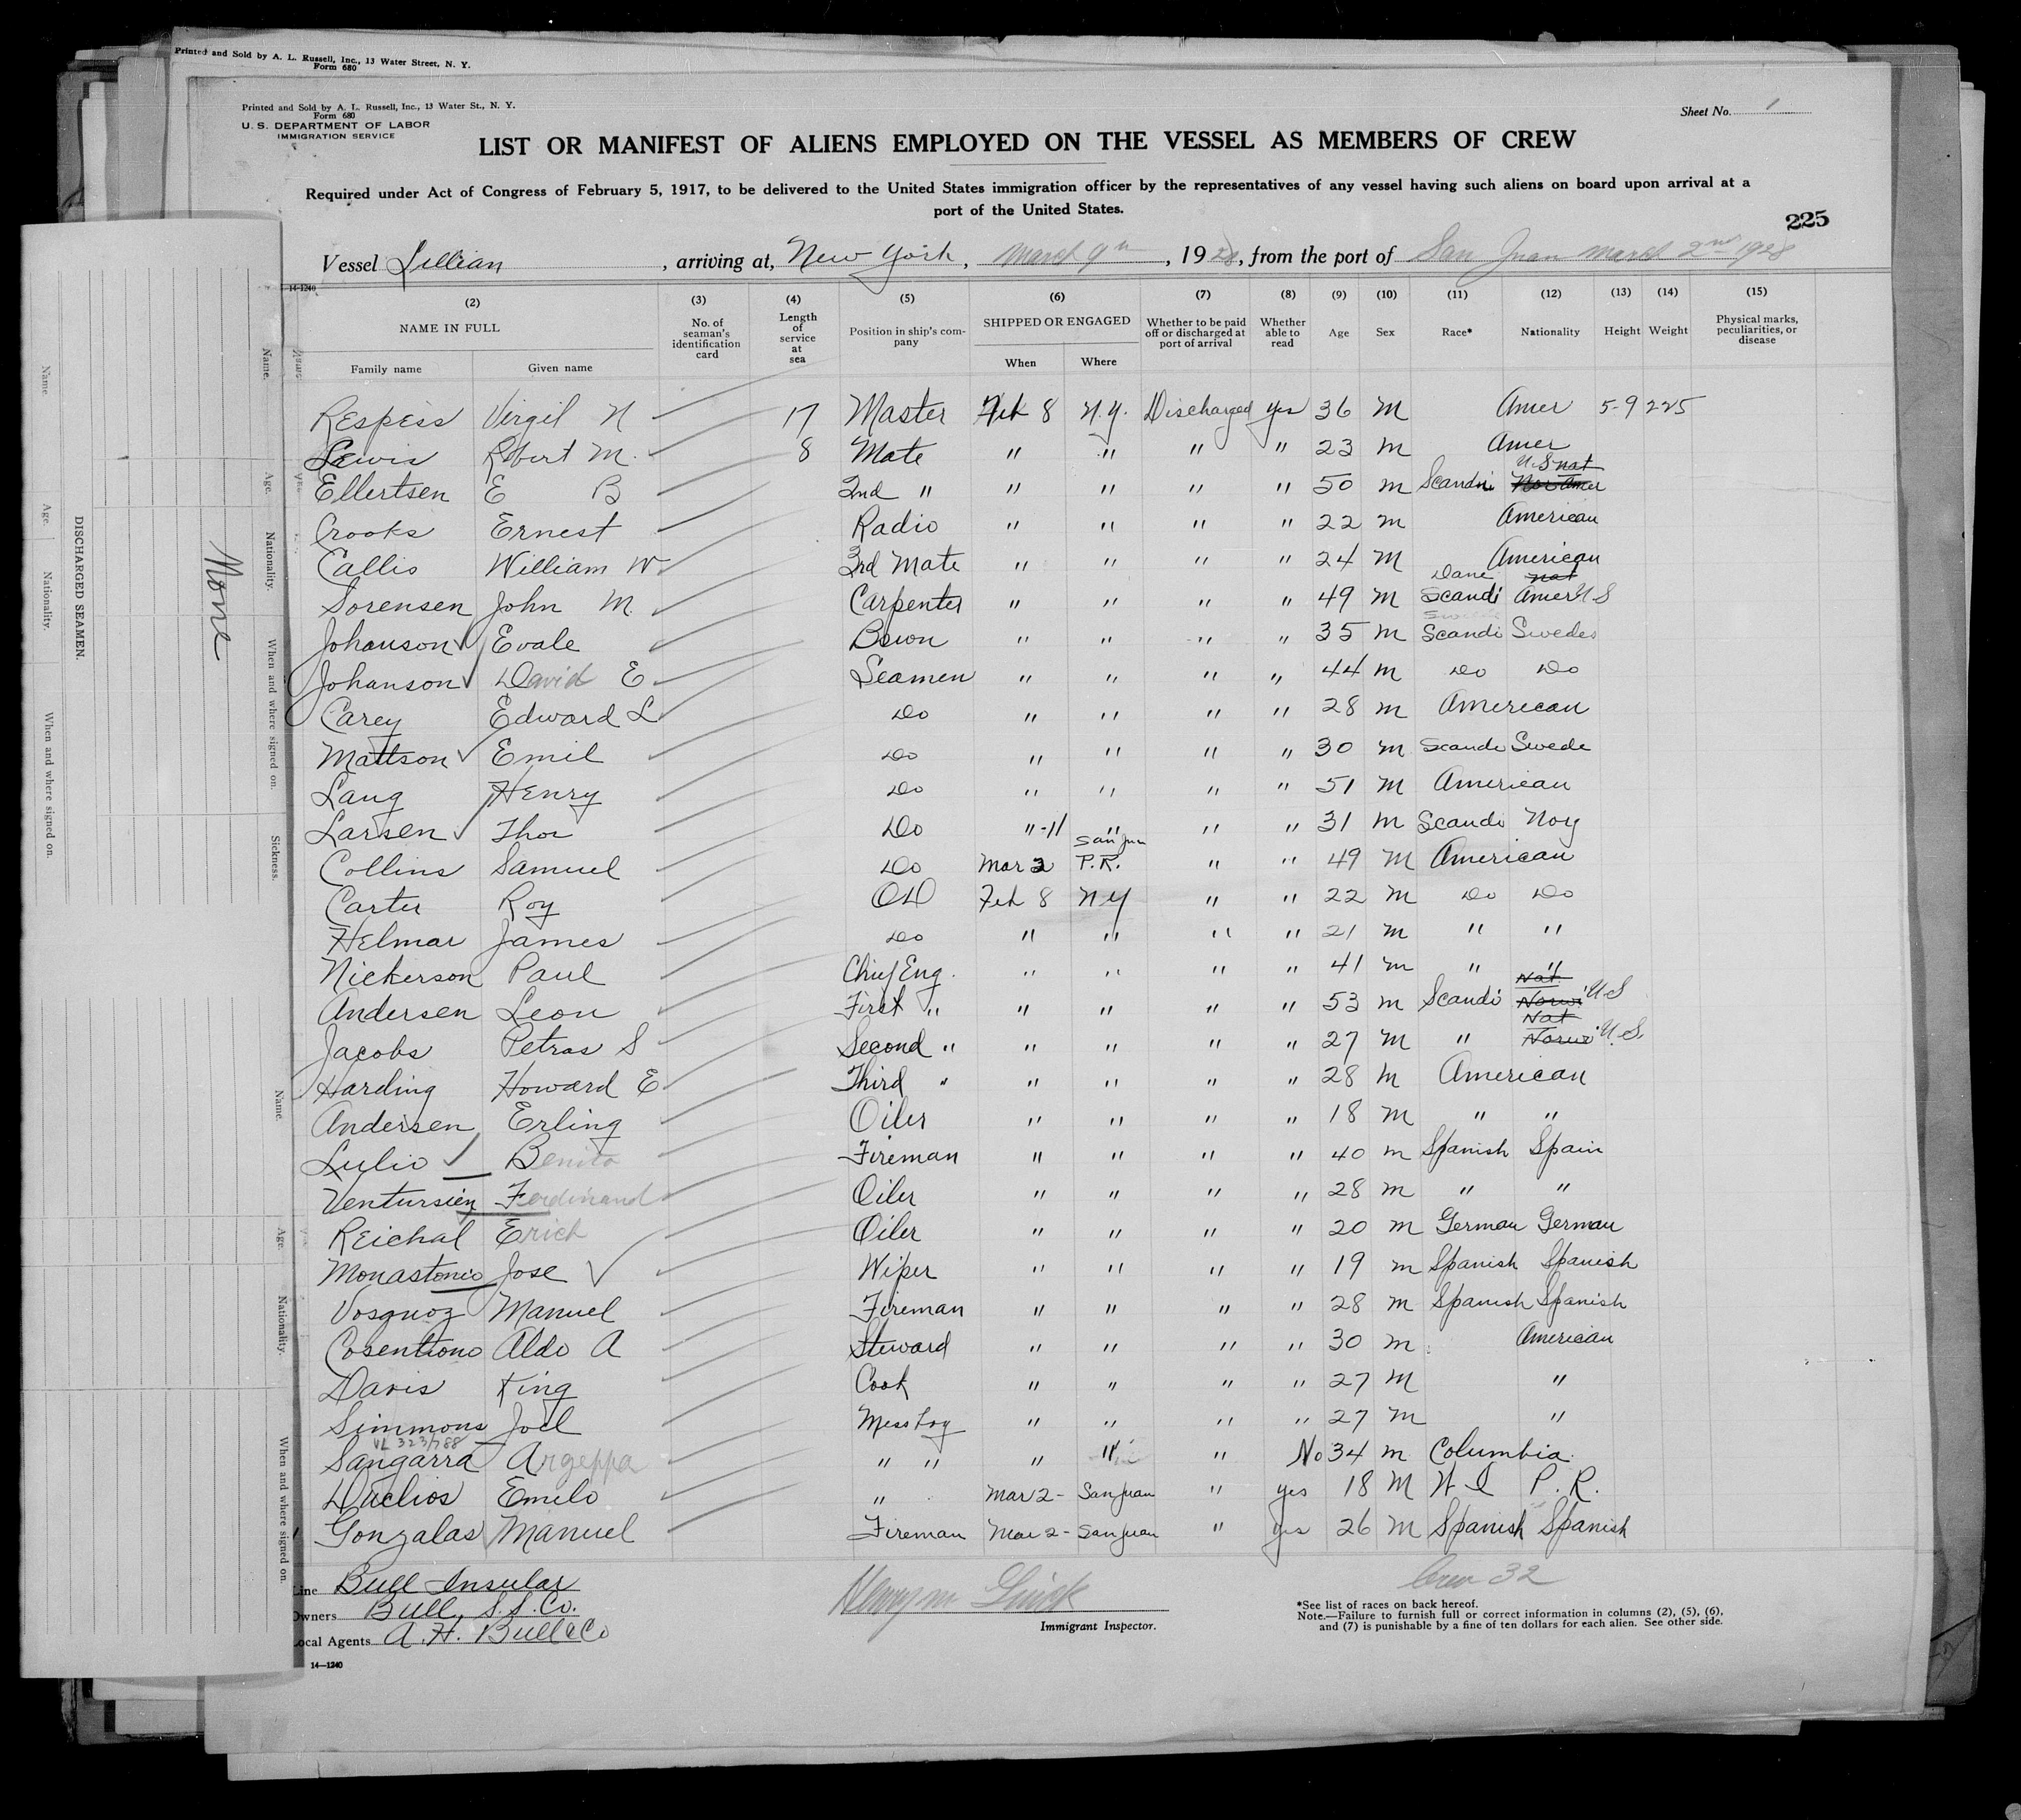 Printed and Sold by A. L. Russell, Inc., 13 Water Street, N. Y.
Form 680
Printed and Sold by A. L. Russell, Inc., 13 Water St., N. Y.
Form 680
U. S. DEPARTMENT OF LABOR
IMMIGRATION SERVICE
Sheet No. 1
LIST OR MANIFEST OF ALIENS EMPLOYED ON THE VESSEL AS MEMBERS OF CREW
Required under Act of Congress of February 5, 1917, to be delivered to the United States immigration officer by the representatives of any vessel having such aliens on board upon arrival at a
port of the United States.
225
Vessel Lillian, arriving at, New York, March 9th, 1928, from the port of San Juan March 2nd 1928
14-1240
(2) (3) (4) (5) (6) (7) (8) (9) (10) (11) (12) (13) (14) (15)
NAME IN FULL No. of seaman's identification card Length of service at sea Position in ship's company SHIPPED OR ENGAGED Whether to be paid off or discharged at port of arrival Whether able to read Age Sex Race* Nationality Height Weight Physical marks, peculiarities, or disease
Family name Given name When Where
Respess Virgil N 17 Master Feb 8 N.Y. Discharged yes 36 M Amer 5-9 225
Lewis Robert M. 8 Mate " " " " 23 M Amer
Ellertsen E B 2nd " " " " " 50 M Scandi U.S nat Nor Amer
Crooks Ernest Radio " " " " 22 M American
Callis William W 3rd Mate " " " " 24 M American
Sorensen John M. Carpenter " " " " 49 M Dane Scandi nat Amer U S
Johanson Evale Bswn " " " " 35 M Scandi Swedes
Johanson David E Seamen " " " " 44 M Do Do
Carey Edward L Do " " " " 28 M American
Mattson Emil Do " " " " 30 M Scandi Swede
Lang Henry Do " " " " 51 M American
Larsen Thor Do "-11 " " " 31 M Scandi Noy
Collins Samuel Do Mar 2 San Jun P.R. " " 49 M American
Carter Roy OD Feb 8 N Y " " 22 M Do Do
Helmar James Do " " " " 21 M " "
Nickerson Paul Chief Eng. " " " " 41 M " "
Andersen Leon First " " " " " 53 M Scandi Nat Norwe U S
Jacobs Petras S Second " " " " " 27 M " Nat Norwe U.S.
Harding Howard E Third " " " " " 28 M American
Andersen Erling Oiler " " " " 18 M " "
Lulio Benito Fireman " " " " 40 M Spanish Spain
Ventursien Ferdinand Oiler " " " " 28 M " "
Reichal Erich Oiler " " " " 20 M German German
Monastonio Jose Wiper " " " " 19 M Spanish Spanish
Vosquoz Manuel Fireman " " " " 28 M Spanish Spanish
Cosentiono Aldo A Steward " " " " 30 M American
Davis King Cook " " " " 27 M "
Simmons Joel Mess boy " " " " 27 M "
VL 323/788
Sangarra Argeppa " " " " " No 34 M Columbia
Duclios Emilo " Mar 2 - San Juan " yes 18 M W I P. R.
Gonzalas Manuel Fireman Mar 2 - San Juan " yes 26 M Spanish Spanish
Line Bull Insular
Owners Bull, S.S. Co.
Local Agents A. H. Bull & Co
14—1240
Immigrant Inspector.
Crew 32
*See list of races on back hereof.
Note.—Failure to furnish full or correct information in columns (2), (5), (6),
and (7) is punishable by a fine of ten dollars for each alien. See other side.
DISCHARGED SEAMEN.
None
Name.
Age.
Nationality.
When and where signed on.
Name.
Age.
Nationality.
When and where signed on.
Sickness.
Name.
Age.
Nationality.
When and where signed on.